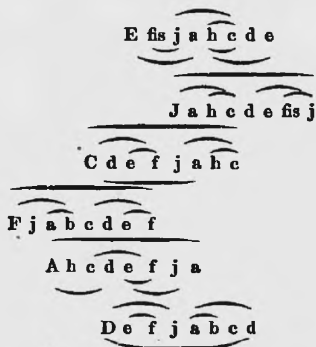 E fis j a h c d e
J a h c d e fis j
C d e f j a h c
F j a b c d e f
A h c d e f j a
D e f j a b c d